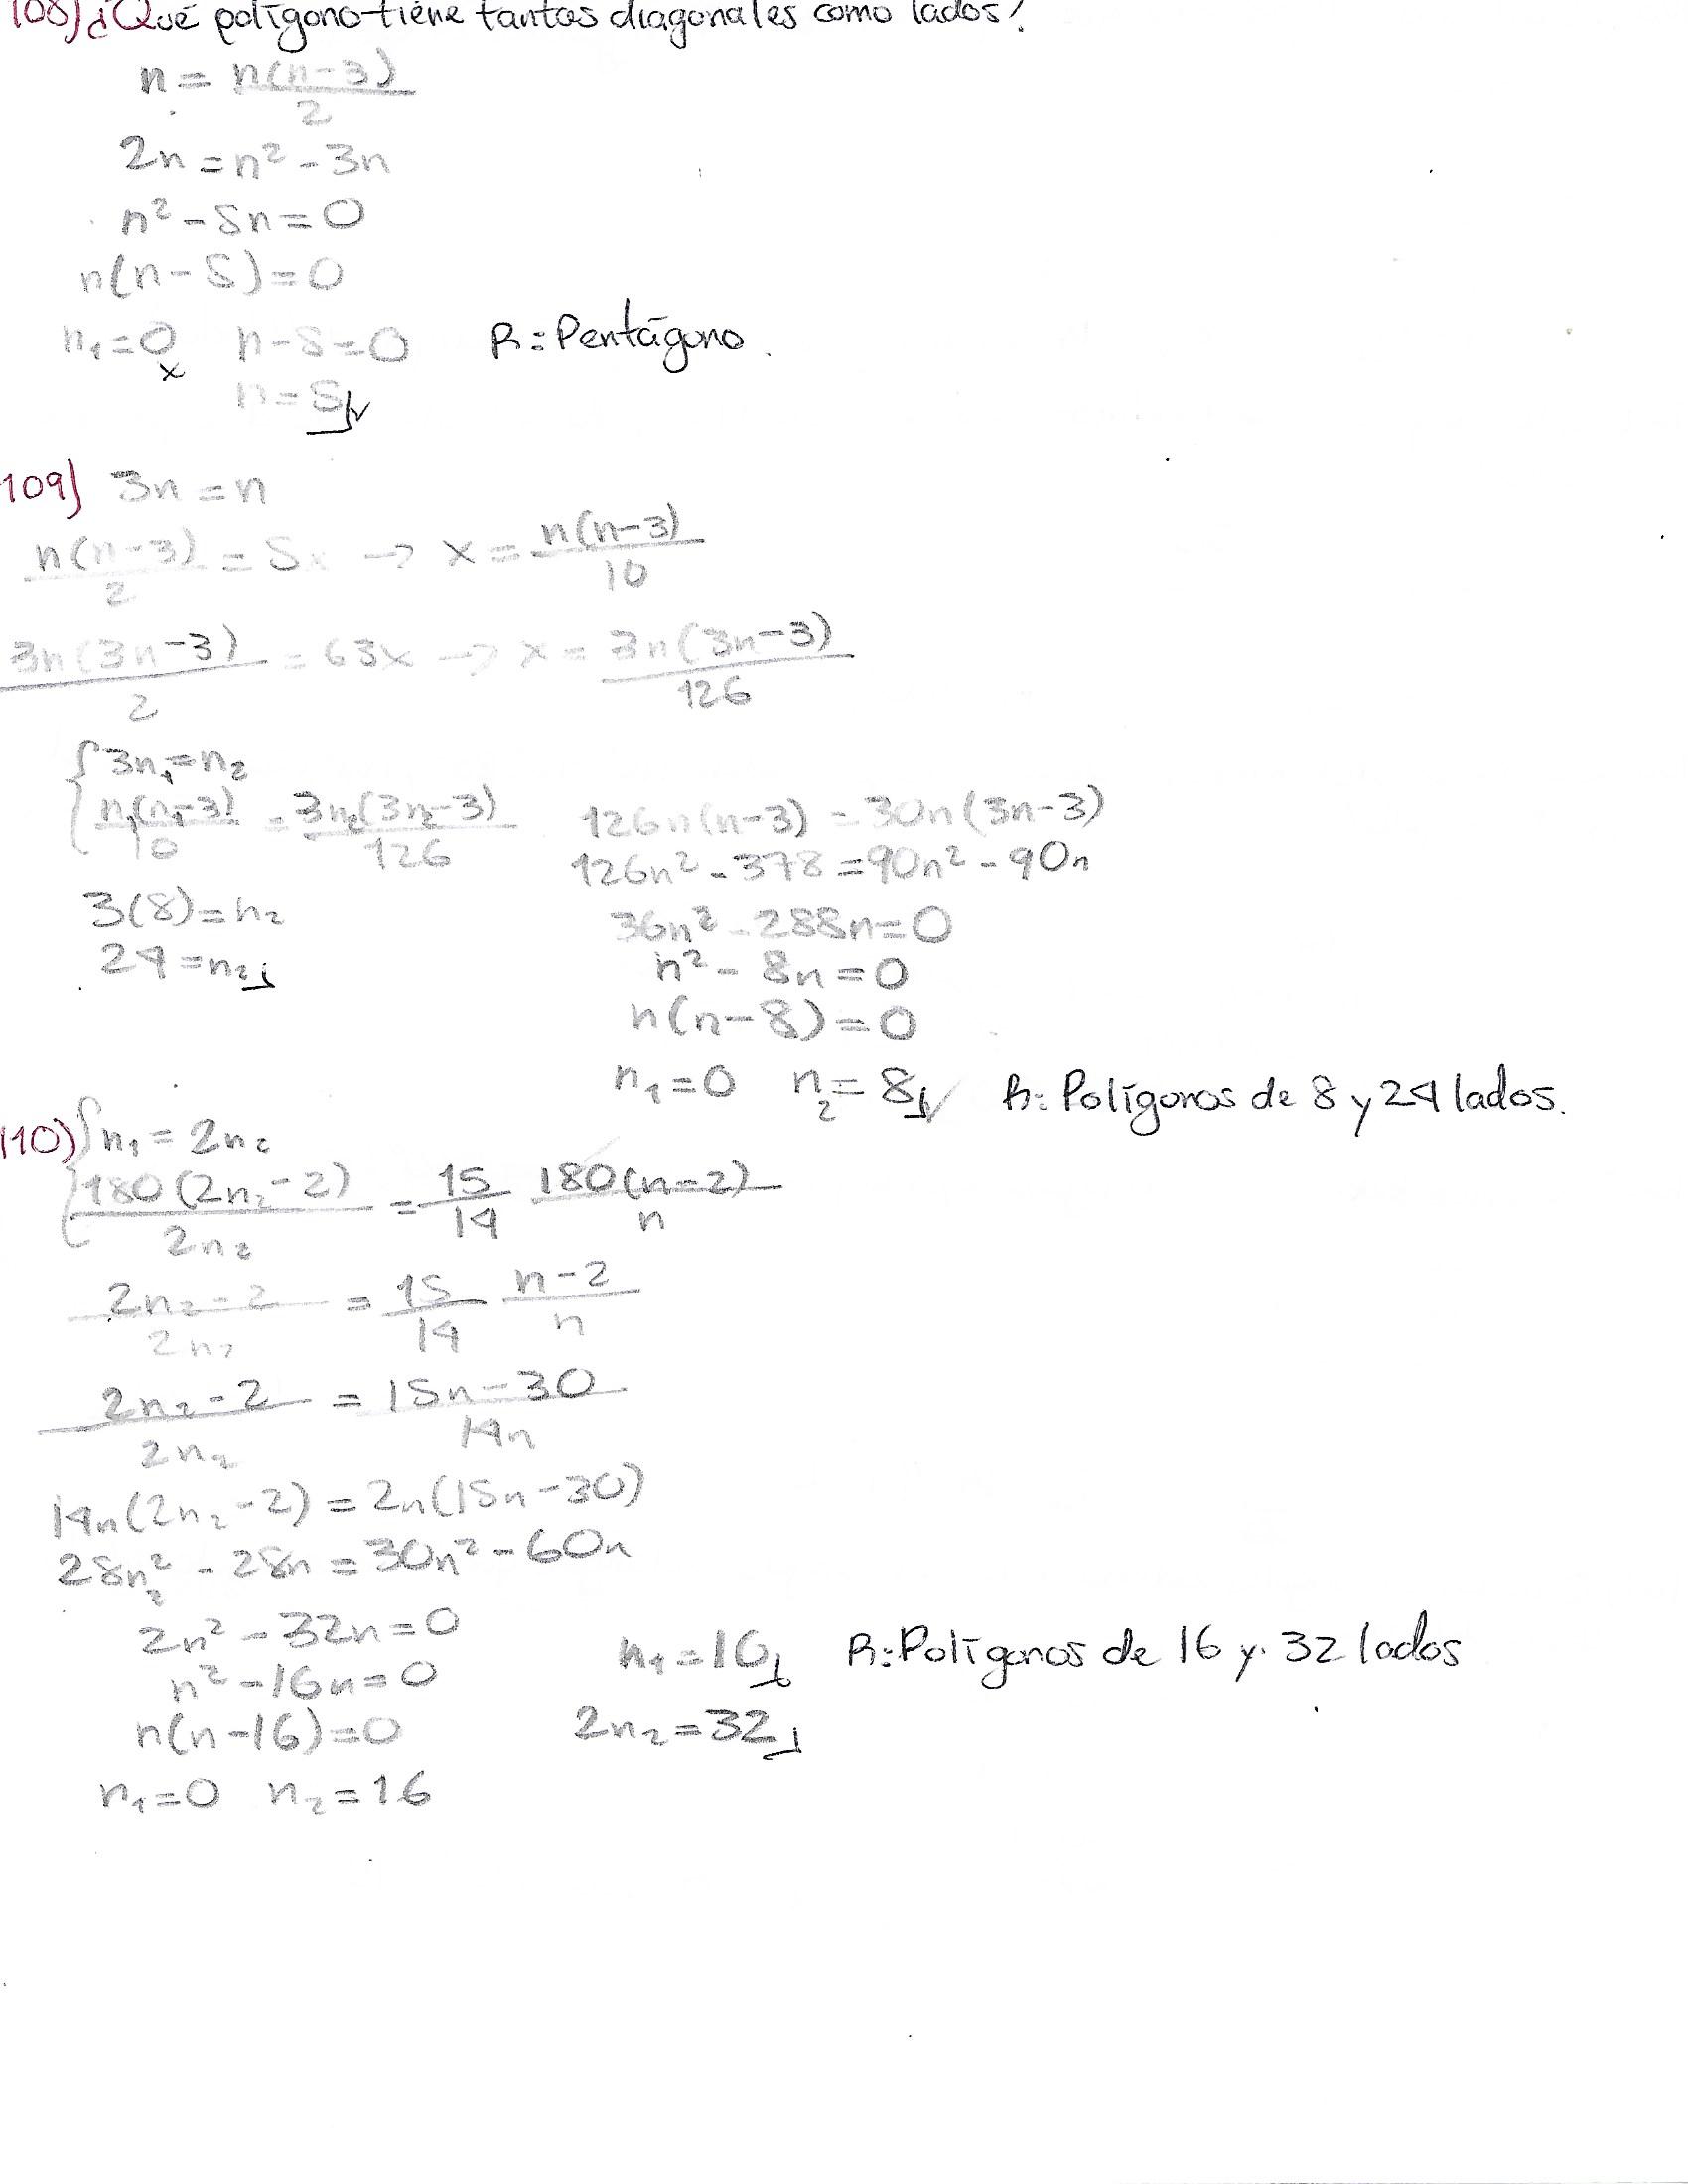 108) ¿Qué polígono tiene tantas diagonales como lados?
n = n(n-3)/2
2n = n² - 3n
n² - 5n = 0
n(n-5) = 0
n₁ = 0 x   n-5 = 0   R: Pentágono.
n = 5 ✓
109) 3n = n
n(n-3)/2 = 5x → x = n(n-3)/10
3n(3n-3)/2 = 63x → x = 3n(3n-3)/126
{ 3n₁ = n₂
n₁(n₁-3)/10 = 3n₂(3n₂-3)/126
3(8) = n₂
24 = n₂
126n(n-3) = 30n(3n-3)
126n² - 378 = 90n² - 90n
36n² - 288n = 0
n² - 8n = 0
n(n-8) = 0
n₁ = 0   n₂ = 8 ✓   R: Polígonos de 8 y 24 lados.
110) { n₁ = 2n₂
180(2n₂-2)/2n₂ = 15/14 180(n-2)/n
2n₂-2/2n₂ = 15/14 n-2/n
2n₂-2/2n₂ = 15n-30/14n
14n(2n₂-2) = 2n(15n-30)
28n₂² - 28n = 30n² - 60n
2n² - 32n = 0
n² - 16n = 0
n(n-16) = 0
n₁ = 0   n₂ = 16
n₁ = 16   R: Polígonos de 16 y 32 lados
2n₂ = 32